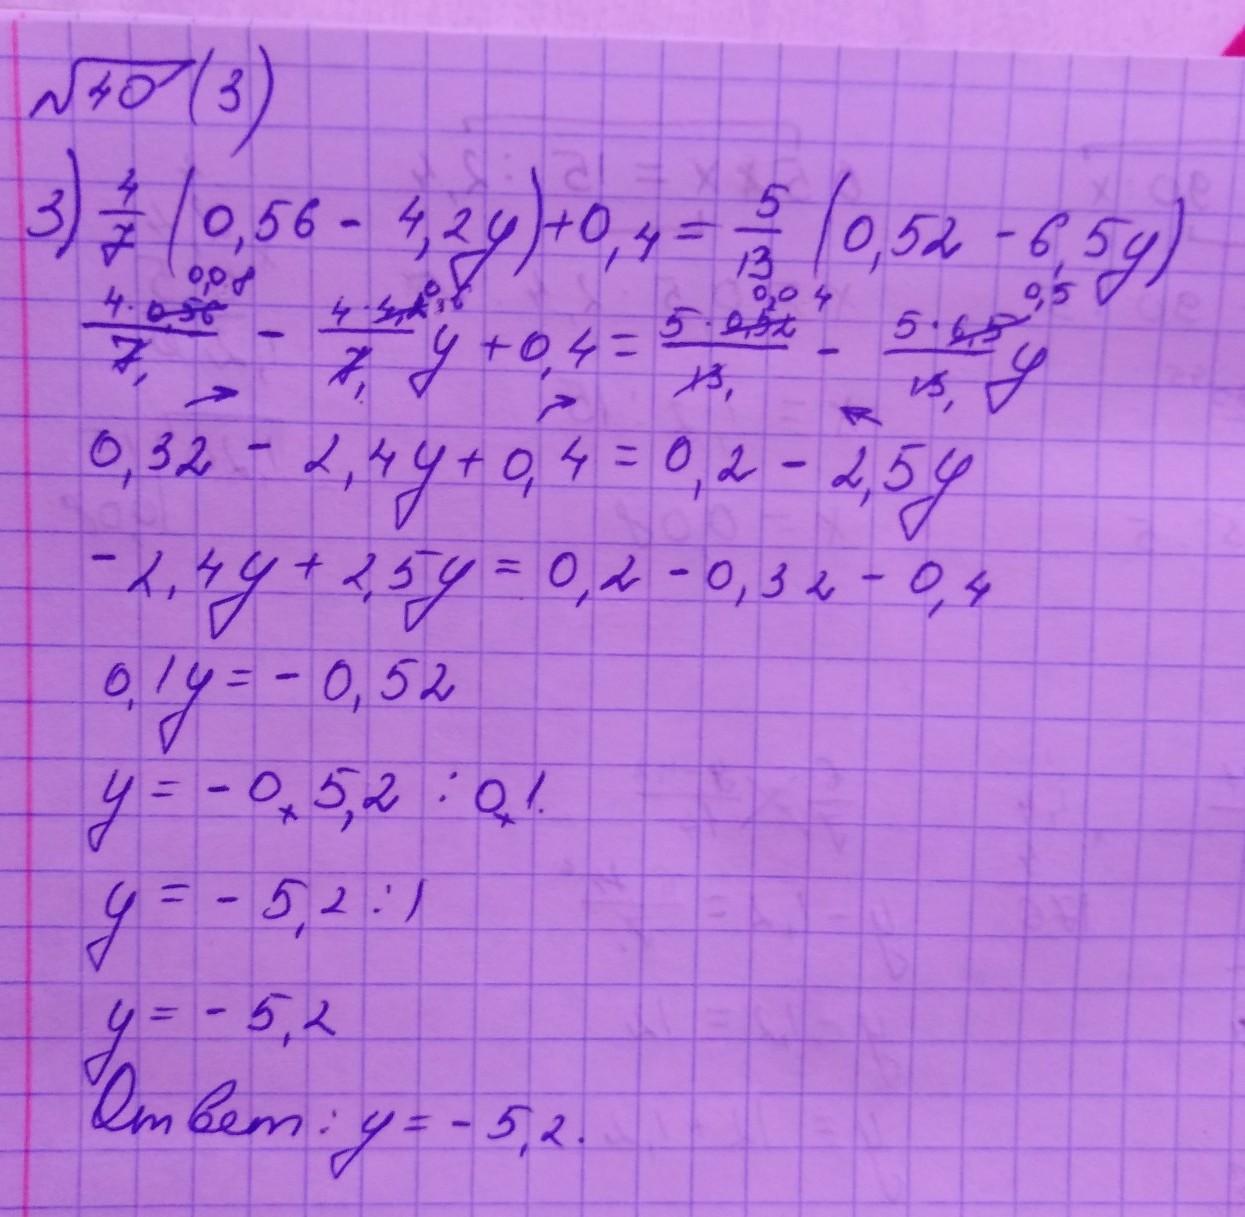 √40 (3)
3) 4/7 (0,56 - 4,2y) + 0,4 = 5/13 (0,52 - 6,5y)
4 · 0,56 0,08 / 7, - 4 · 4,2 0,6 / 7, y + 0,4 = 5 · 0,52 0,04 / 13, - 5 · 6,5 0,5 / 13, y
0,32 - 2,4y + 0,4 = 0,2 - 2,5y
- 2,4y + 2,5y = 0,2 - 0,32 - 0,4
0,1y = - 0,52
y = - 0 5,2 : 0,1
y = - 5,2 : 1
y = - 5,2
Ответ: y = - 5,2.